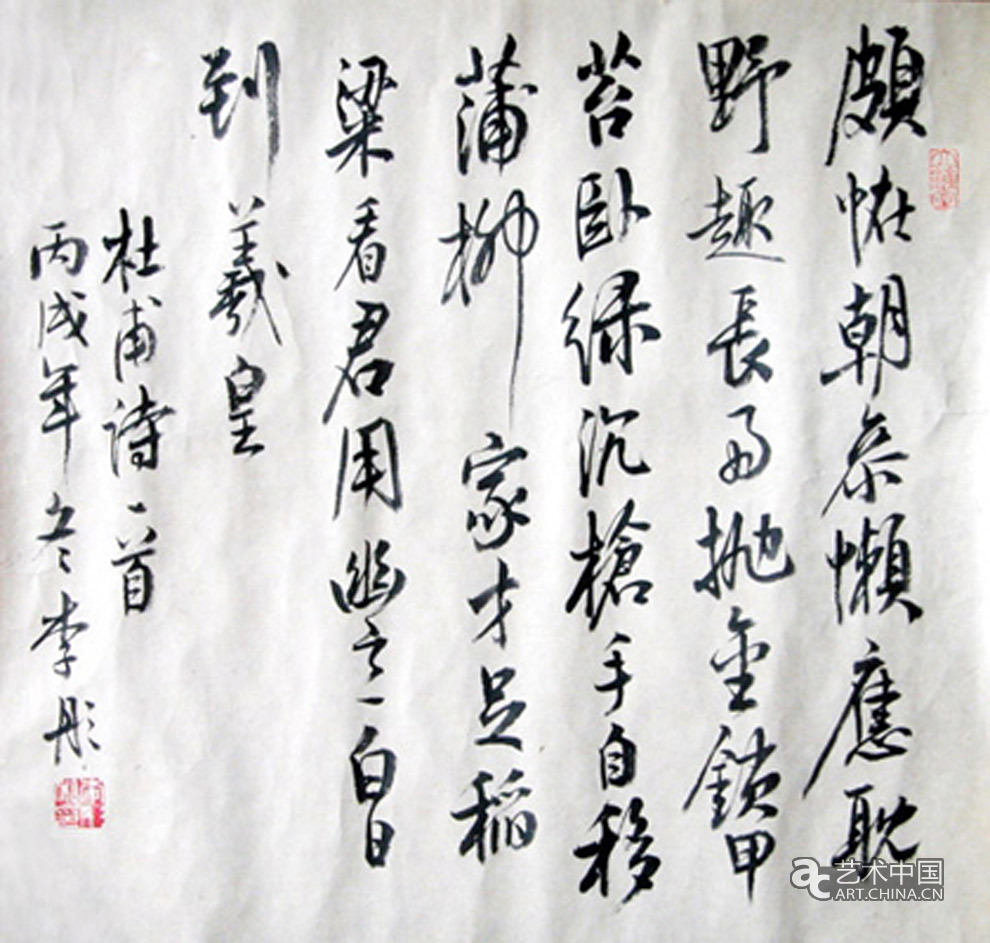 頗恠朝参懶應耽
野趣長雨抛金鎖甲
苔卧緑沉槍手自移
蒲柳家才足稻
粱看君用幽意白日
到羲皇
杜甫詩一首
丙戌年冬李彤
艺术中国
ART.CHINA.CN